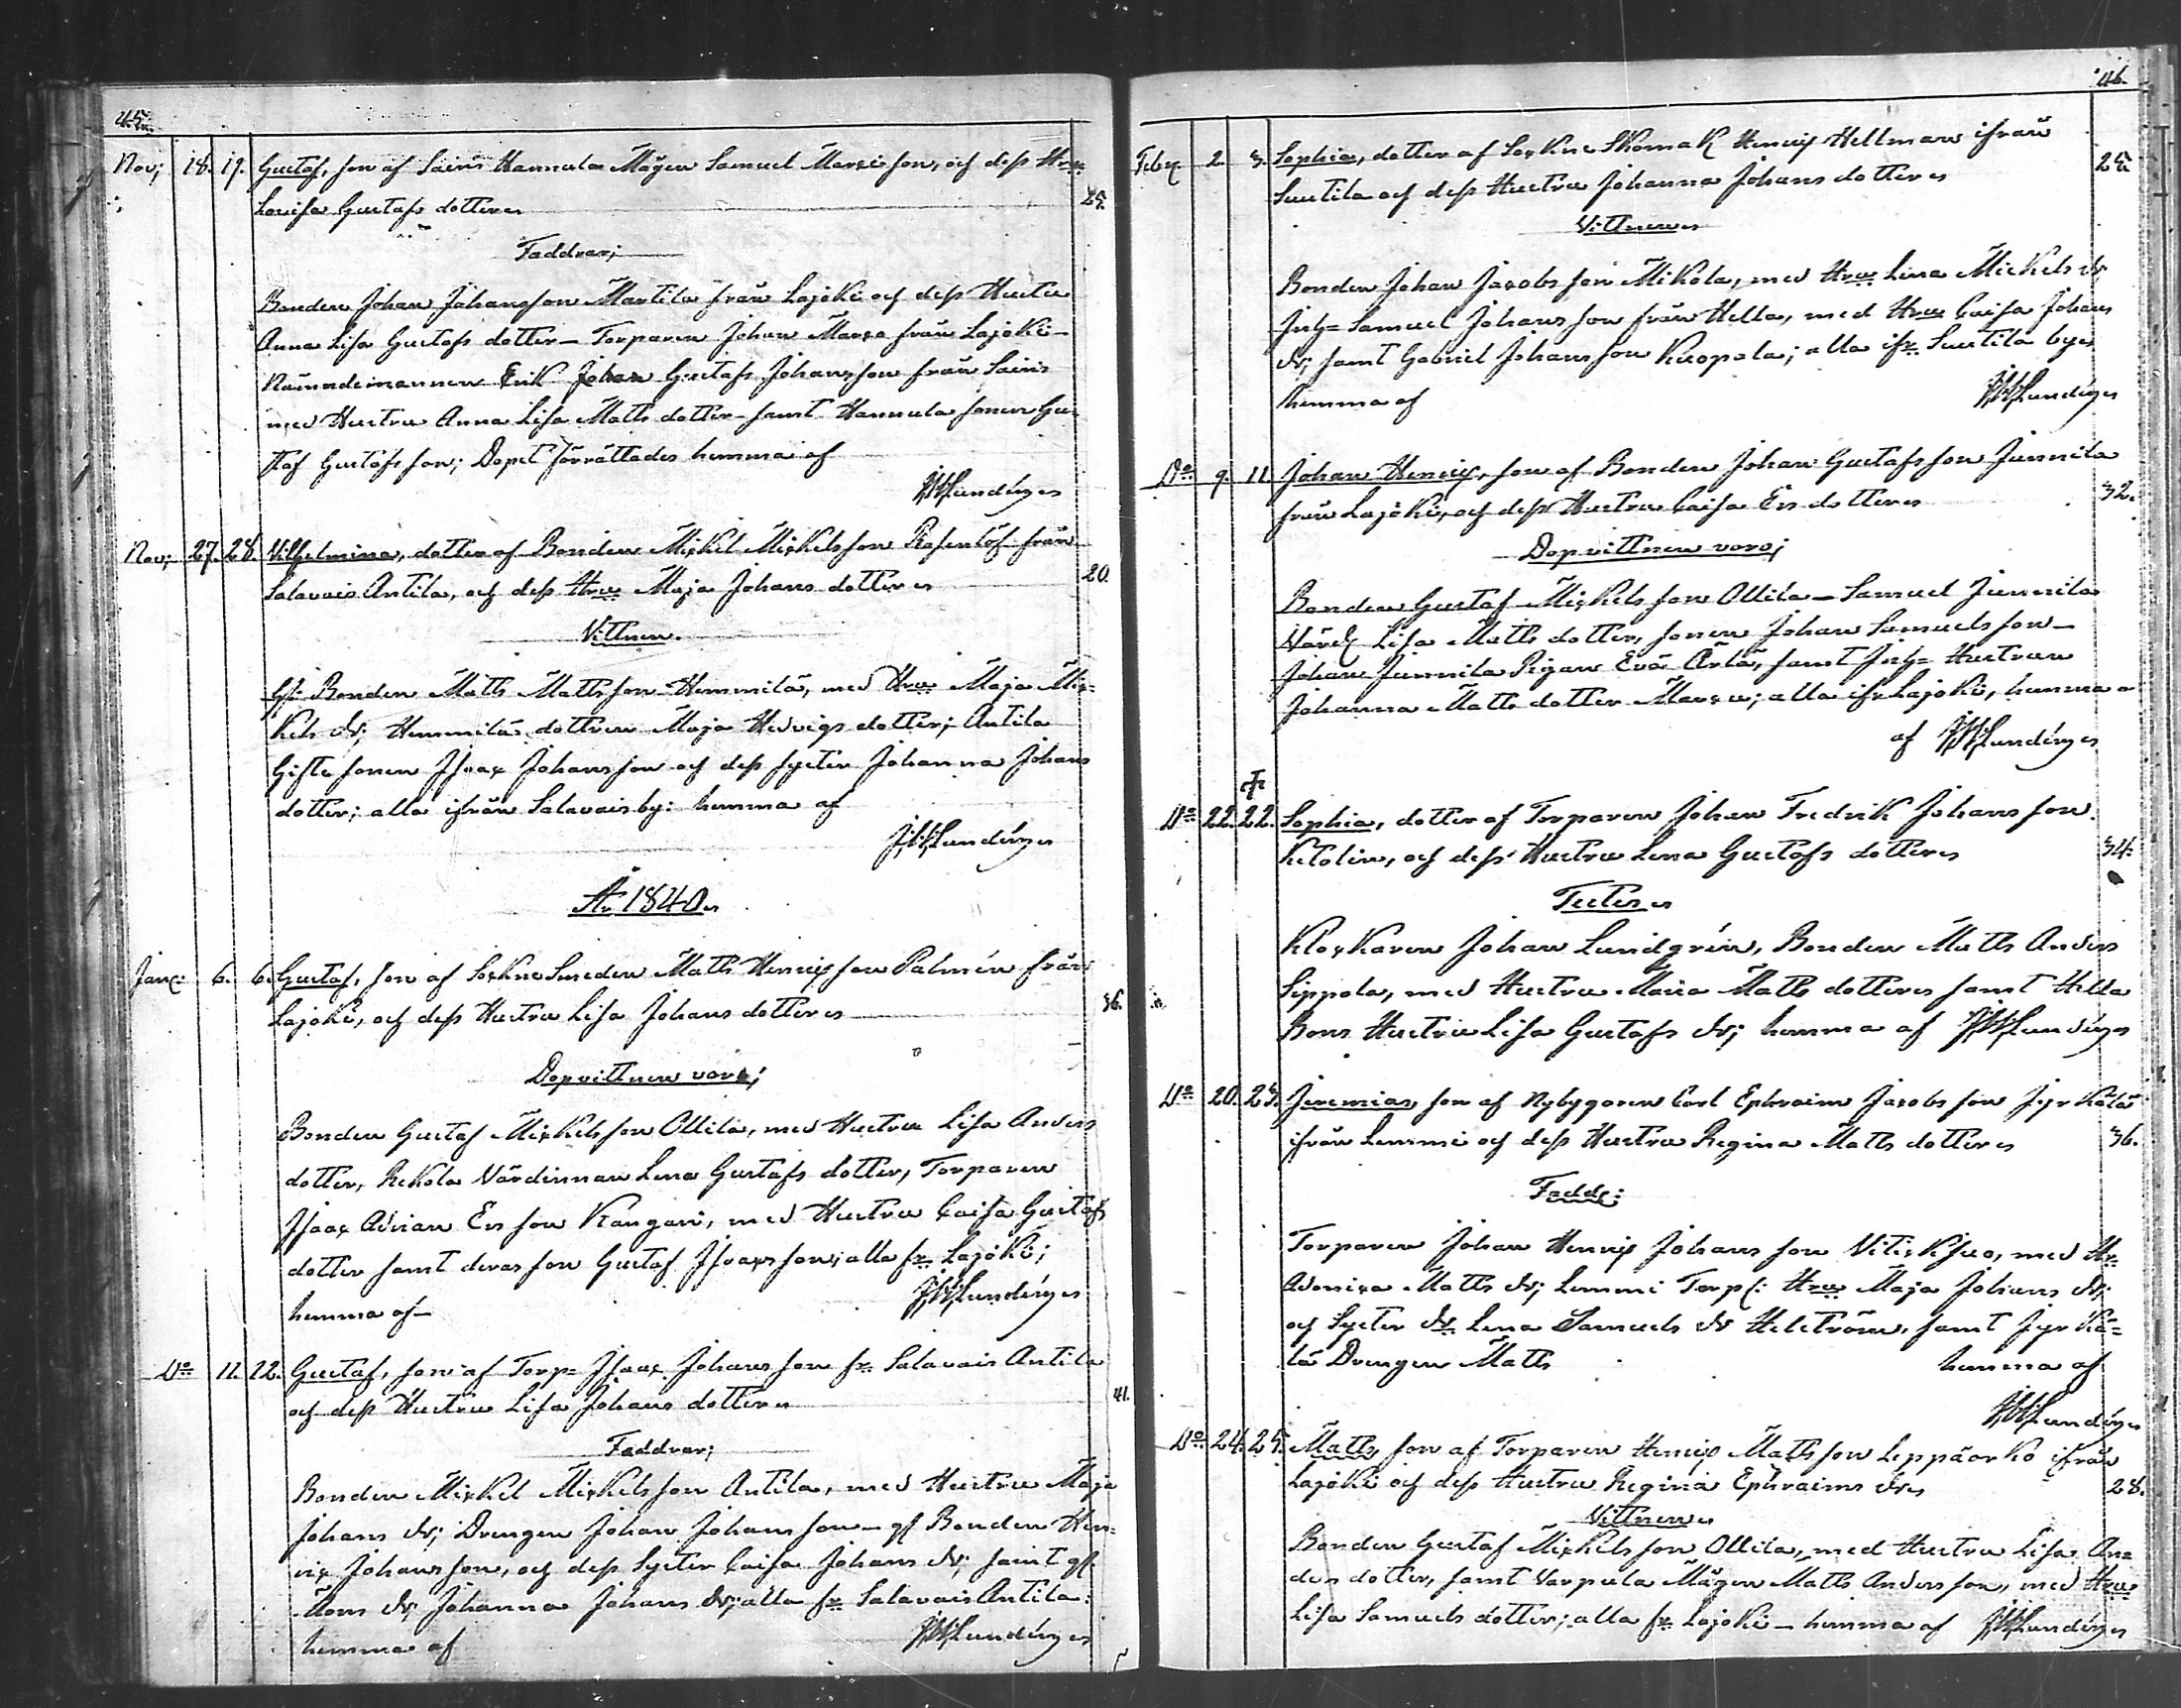 45.
Nov; 18. 19. Gustaf, son af Sairis Hannula Mågen Samuel Marcisson, och dess Hru
Lovisa Gustafs dotter 25.
Faddrar;
Bonden Johan Johansson Martila från Lajoki och dess Hustru
Anna Lisa Gustafs dotter – Torparen Johan Marca från Lajoki –
Nämndemannen Erik Johan Gustafs Johansson från Sairis
med Hustru Anna Lisa Matts dotter – samt Hannula sonen Gu-
staf Gustafsson; Dopet förrättades hemma af
Lundén
Nov; 27. 28. Vilhelmina, dotter af Bonden Mickel Mickelsson Rosenlöf från
Salavais Antila, och dess Hru Maja Johans dotter 20.
Vittnen.
Bonden Matts Mattsson Hemmilä, med Hru Maja Mic-
kels dr; Hemmilä dottren Maja Hedvigs dotter; Antila
Gifte sonen Isaac Johansson och dess syster Johanna Johans
dotter; alla ifrån Salavais by: hemma af
År 1840.
Janr: 6. 6. Gustaf, son af Sockne Smeden Matts Henricsson Palmén från
Lajoki, och dess Hustru Lisa Johans dotter 36.
Dopvittnen voro;
Bonden Gustaf Mickelsson Ollila, med Hustru Lisa Anders
dotter, Rekola Värdinnan Lena Gustafs dotter, Torparen
Isaac Adrian Ersson Kangari, med Hustru Caisa Gustafs
dotter samt deras son Gustaf Isacsson; alla fr. Lajoki;
hemma af –
Do 11. 12. Gustaf, son af Torp= Isaac Johansson fr. Salavais Antila
och dess Hustru Lisa Johans dotter 41.
Faddrar;
Bonden Mickel Mickelsson Antila, med Hustru Maja
Johans dr; Drengen Johan Johansson – gf Bonden Hen-
ric Johansson, och dess Syster Caisa Johans dr; samt gf
Mons dr Johanna Johans dr; alla fr. Salavais Antila:
hemma af
46.
Febr 2. 3. Sophia, dotter af Sockne Skomak Henric Hellman ifrån
Suutila och dess Hustru Johanna Johans dotter 25
Vittnen
Bonden Johan Jacobsson Mikola, med Hru Lena Mickels dr
Inh= Samuel Johansson från Hella, med Hru Caisa Johans
dr; samt Gabriel Johansson Kuopola; alla ifr. Suutila by
hemma af
Do 9. 11. Johan Henric, son af Bonden Johan Gustafsson Junnila
från Lajoki, och dess Hustru Caisa Ers dotter 32.
Dopvittnen voro;
Bonden Gustaf Mickelsson Ollila – Samuel Junnila
Värd Lisa Matts dotter, sonen Johan Samuelsson –
Johan Junnila Pigan Eva Ärlä, samt Inh= Hustrun
Johanna Matts dotter Marca; alla ifr Lajoki, hemma
af
Do 22. 22. Sophia, dotter af Torparen Johan Fredrik Johansson
Ketolin, och dess Hustru Lena Gustafs dotter 34.
Testes
Klockaren Johan Lundgrén, Bonden Matts Anders
Sippola, med Hustru Maria Matts dotter samt Hella
Bons Hustru Lisa Gustafs dr; hemma af
Do 20. 23. Jeremias, son af Nybygaren Carl Ephraim Jacobsson Jyrkölä
ifrån Lemmi och dess Hustru Regina Matts dotter 36.
Fadd:
Torparen Johan Henric Johansson Viticksuo, med Hr.
Adonica Matts dr; Lemmi Torp: Hru Maja Johans dr;
och Syster dr Lena Samuels dr Helström, samt Jyrkö-
lä Drengen Matts hemma af
Do 24. 25. Matts, son af Torparen Henric Mattsson Leppäorko ifrån
Lajoki och dess Hustru Regina Ephraims dr 28.
Vittnen
Bonden Gustaf Mickelsson Ollila, med Hustru Lisa An-
ders dotter, samt Varpula Mågen Matts Andersson, med Hru
Lisa Samuels dotter; alla fr. Lajoki – hemma af